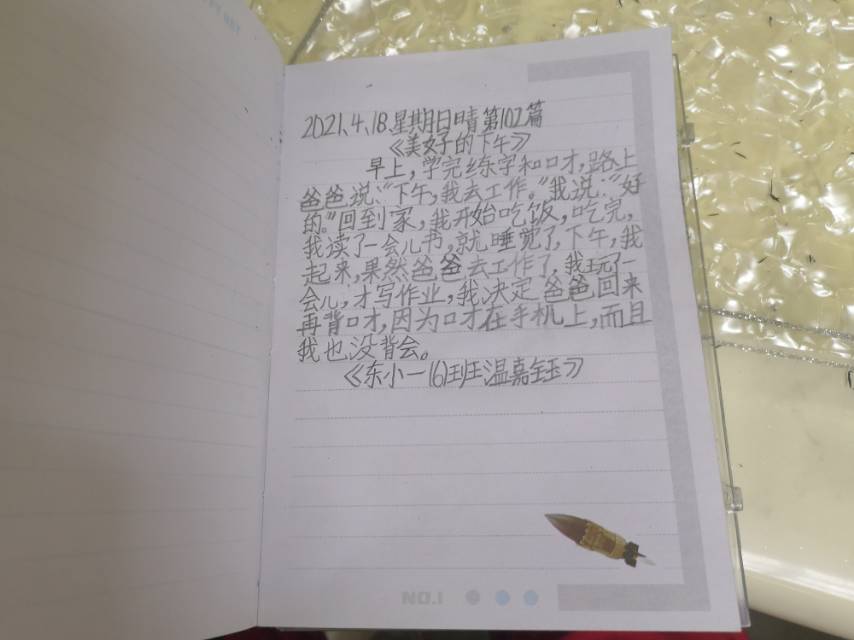 2021.4.18.星期日晴第102篇
《美好的下午》
早上，学完练字和口才，路上
爸爸说：“下午，我去工作。”我说：“好
的。”回到家，我开始吃饭，吃完，
我读了一会儿书，就睡觉了，下午，我
起来，果然爸爸去工作了，我玩了一
会儿，才写作业，我决定爸爸回来
再背口才，因为口才在手机上，而且
我也没背会。
《东小一(6)班温嘉钰》
NO.1